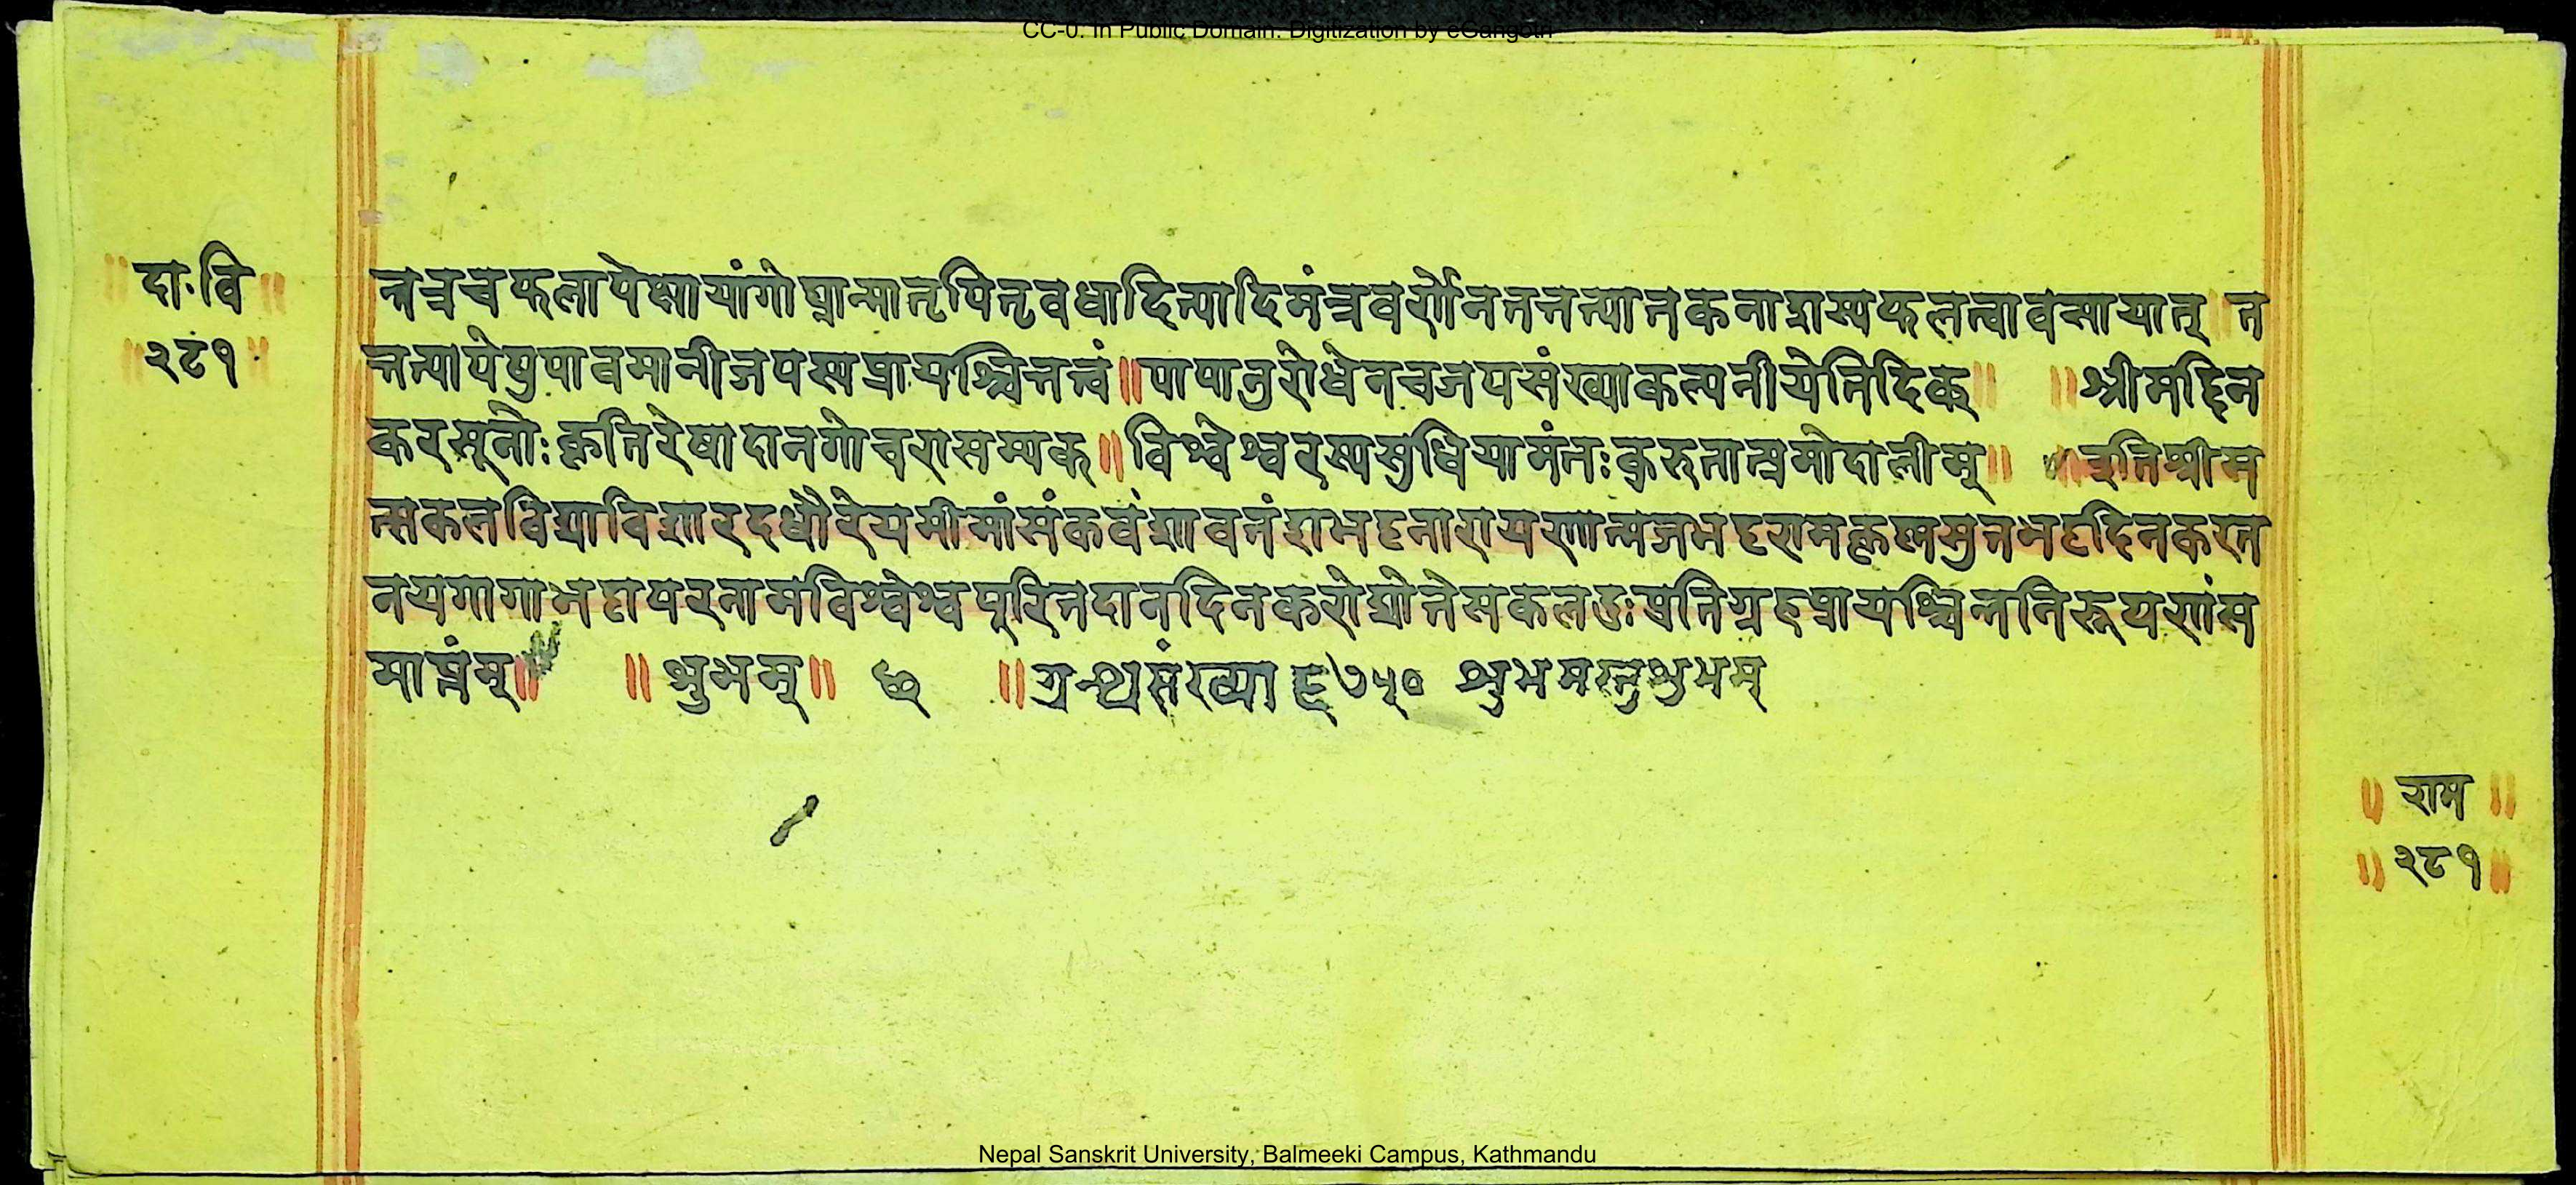 CC-0. In Public Domain. Digitization by eGangotri
॥ दा. वि ॥
॥ २८१ ॥
न्नच्चचफलापेक्षायांगोघ्रान्मातृपितृवधादित्यादिमंत्रवर्णेनतत्तन्त्यातकनाशस्यफलत्वावसायात् ॥ त
त्तत्यापेषुपावमानीजपस्यप्रायश्चित्तत्त्वं ॥ पापानुरोधेनचजपसंख्याकल्पनीयेतिदिक् ॥ ॥ श्रीमद्दिन
करसूनोः कृतिरेषादानगोचरासम्यक् ॥ विश्वेश्वरस्यसुधियामंतः कुरुतात्प्रमोदालीम् ॥ ॥ इतिश्रीम
त्सकलविद्याविशारदधौरेयमीमांसंकवंशावतंशभट्टनारायणात्मजभट्टरामकृष्णसुतभट्टदिनकरत
नयगागाभट्टापरनामविश्वेश्वपूरितदानदिनकरोद्योतेसकलदुः प्रतिग्रहप्रायश्चित्तनिरूपणंस
माप्तंम् ॥ ॥ शुभम् ॥ ॥ ग्रन्थसंख्या ६७५० शुभमस्तुशुभम्
॥ राम ॥
॥ २८१ ॥
Nepal Sanskrit University, Balmeeki Campus, Kathmandu